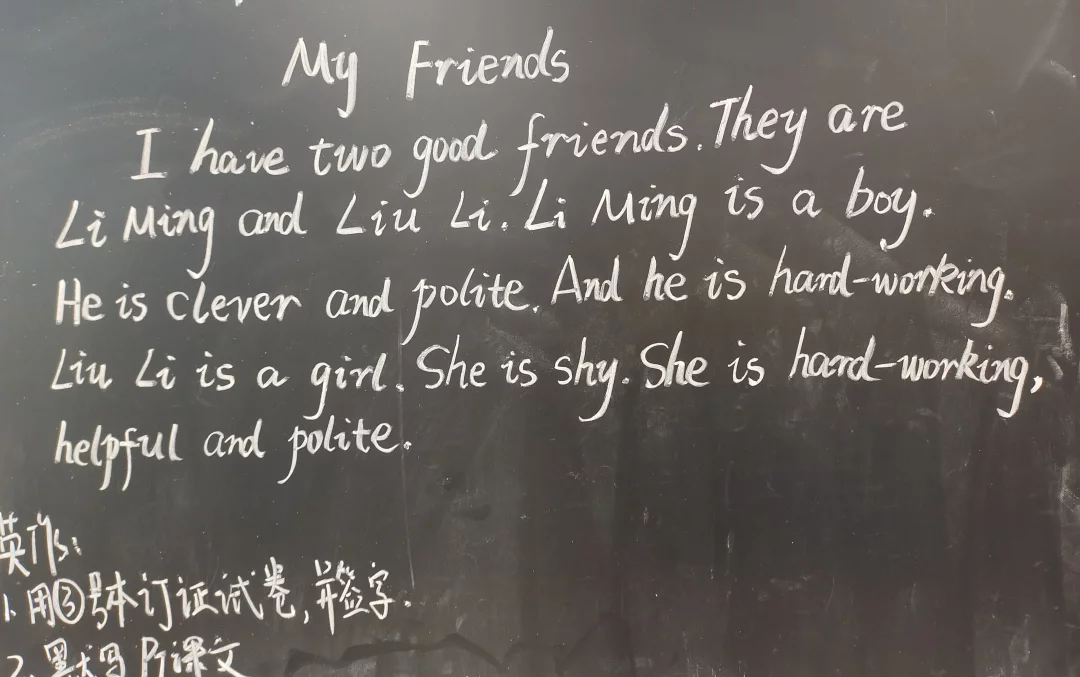 My Friends
I have two good friends. They are
Li Ming and Liu Li. Li Ming is a boy.
He is clever and polite. And he is hard-working.
Liu Li is a girl. She is shy. She is hard-working,
helpful and polite.
英作:
1. 用③号本订证试卷,并签字.
2. 默写P1课文